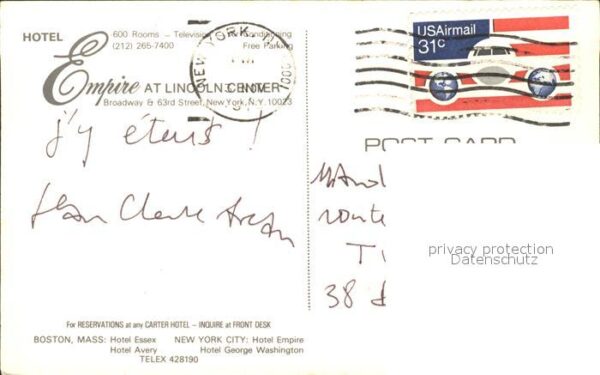 HOTEL
600 Rooms – Television
Air Conditioning
(212) 265-7400
Free Parking
Empire AT LINCOLN CENTER
Broadway & 63rd Street, New York, N.Y. 10023
NEW YORK, N
USAirmail
31c
POST CARD
j'y étais !
Jean Claude
route
38
privacy protection
Datenschutz
For RESERVATIONS at any CARTER HOTEL – INQUIRE at FRONT DESK
BOSTON, MASS: Hotel Essex NEW YORK CITY: Hotel Empire
Hotel Avery Hotel George Washington
TELEX 428190